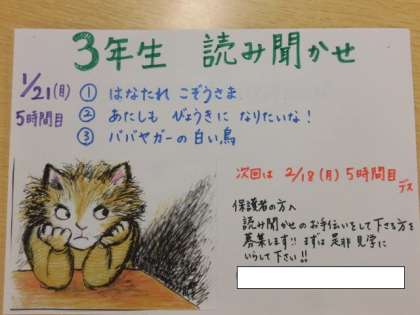 3年生 読み聞かせ
1/21(月)
5時間目
① はなたれ こぞうさま
② あたしも びょうきに なりたいな!
③ ババヤガーの白い鳥
次回は 2/18(月) 5時間目デス
保護者の方へ
読み聞かせのお手伝いをして下さる方を
募集します!! まずは是非 見学に
いらして下さい!!